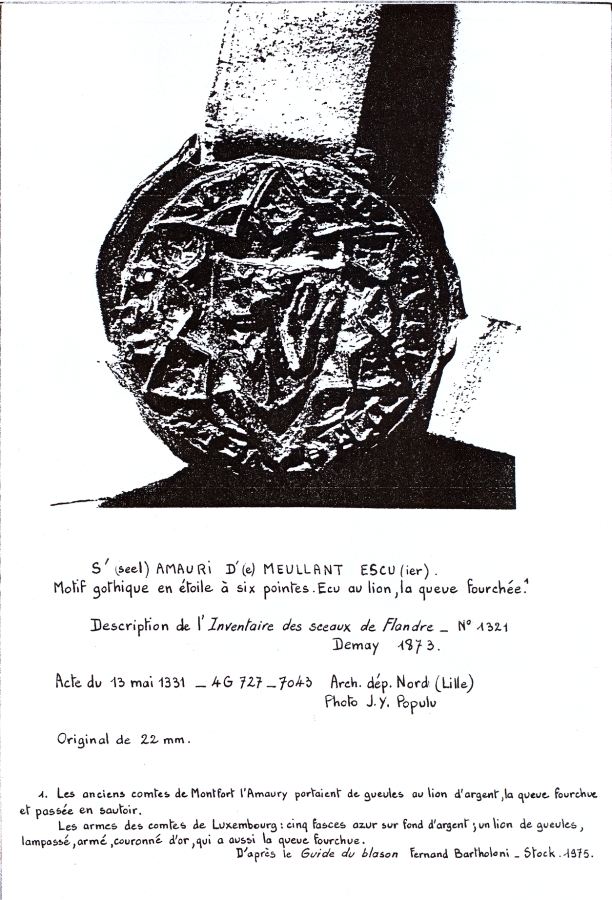 S' (seel) AMAURI D'(e) MEULLANT ESCU (ier).
Motif gothique en étoile à six pointes. Ecu au lion, la queue fourchée.¹
Description de l'Inventaire des sceaux de Flandre _ N° 1321
Demay 1873.
Acte du 13 mai 1331 _ 4G 727 _ 7043 Arch. dép. Nord (Lille)
Photo J.Y. Populu
Original de 22 mm.
1. Les anciens comtes de Montfort l'Amaury portaient de gueules au lion d'argent, la queue fourchue
et passée en sautoir.
Les armes des comtes de Luxembourg : cinq fasces azur sur fond d'argent ; un lion de gueules,
lampassé, armé, couronné d'or, qui a aussi la queue fourchue.
D'après le Guide du blason Fernand Bartholoni _ Stock. 1975.